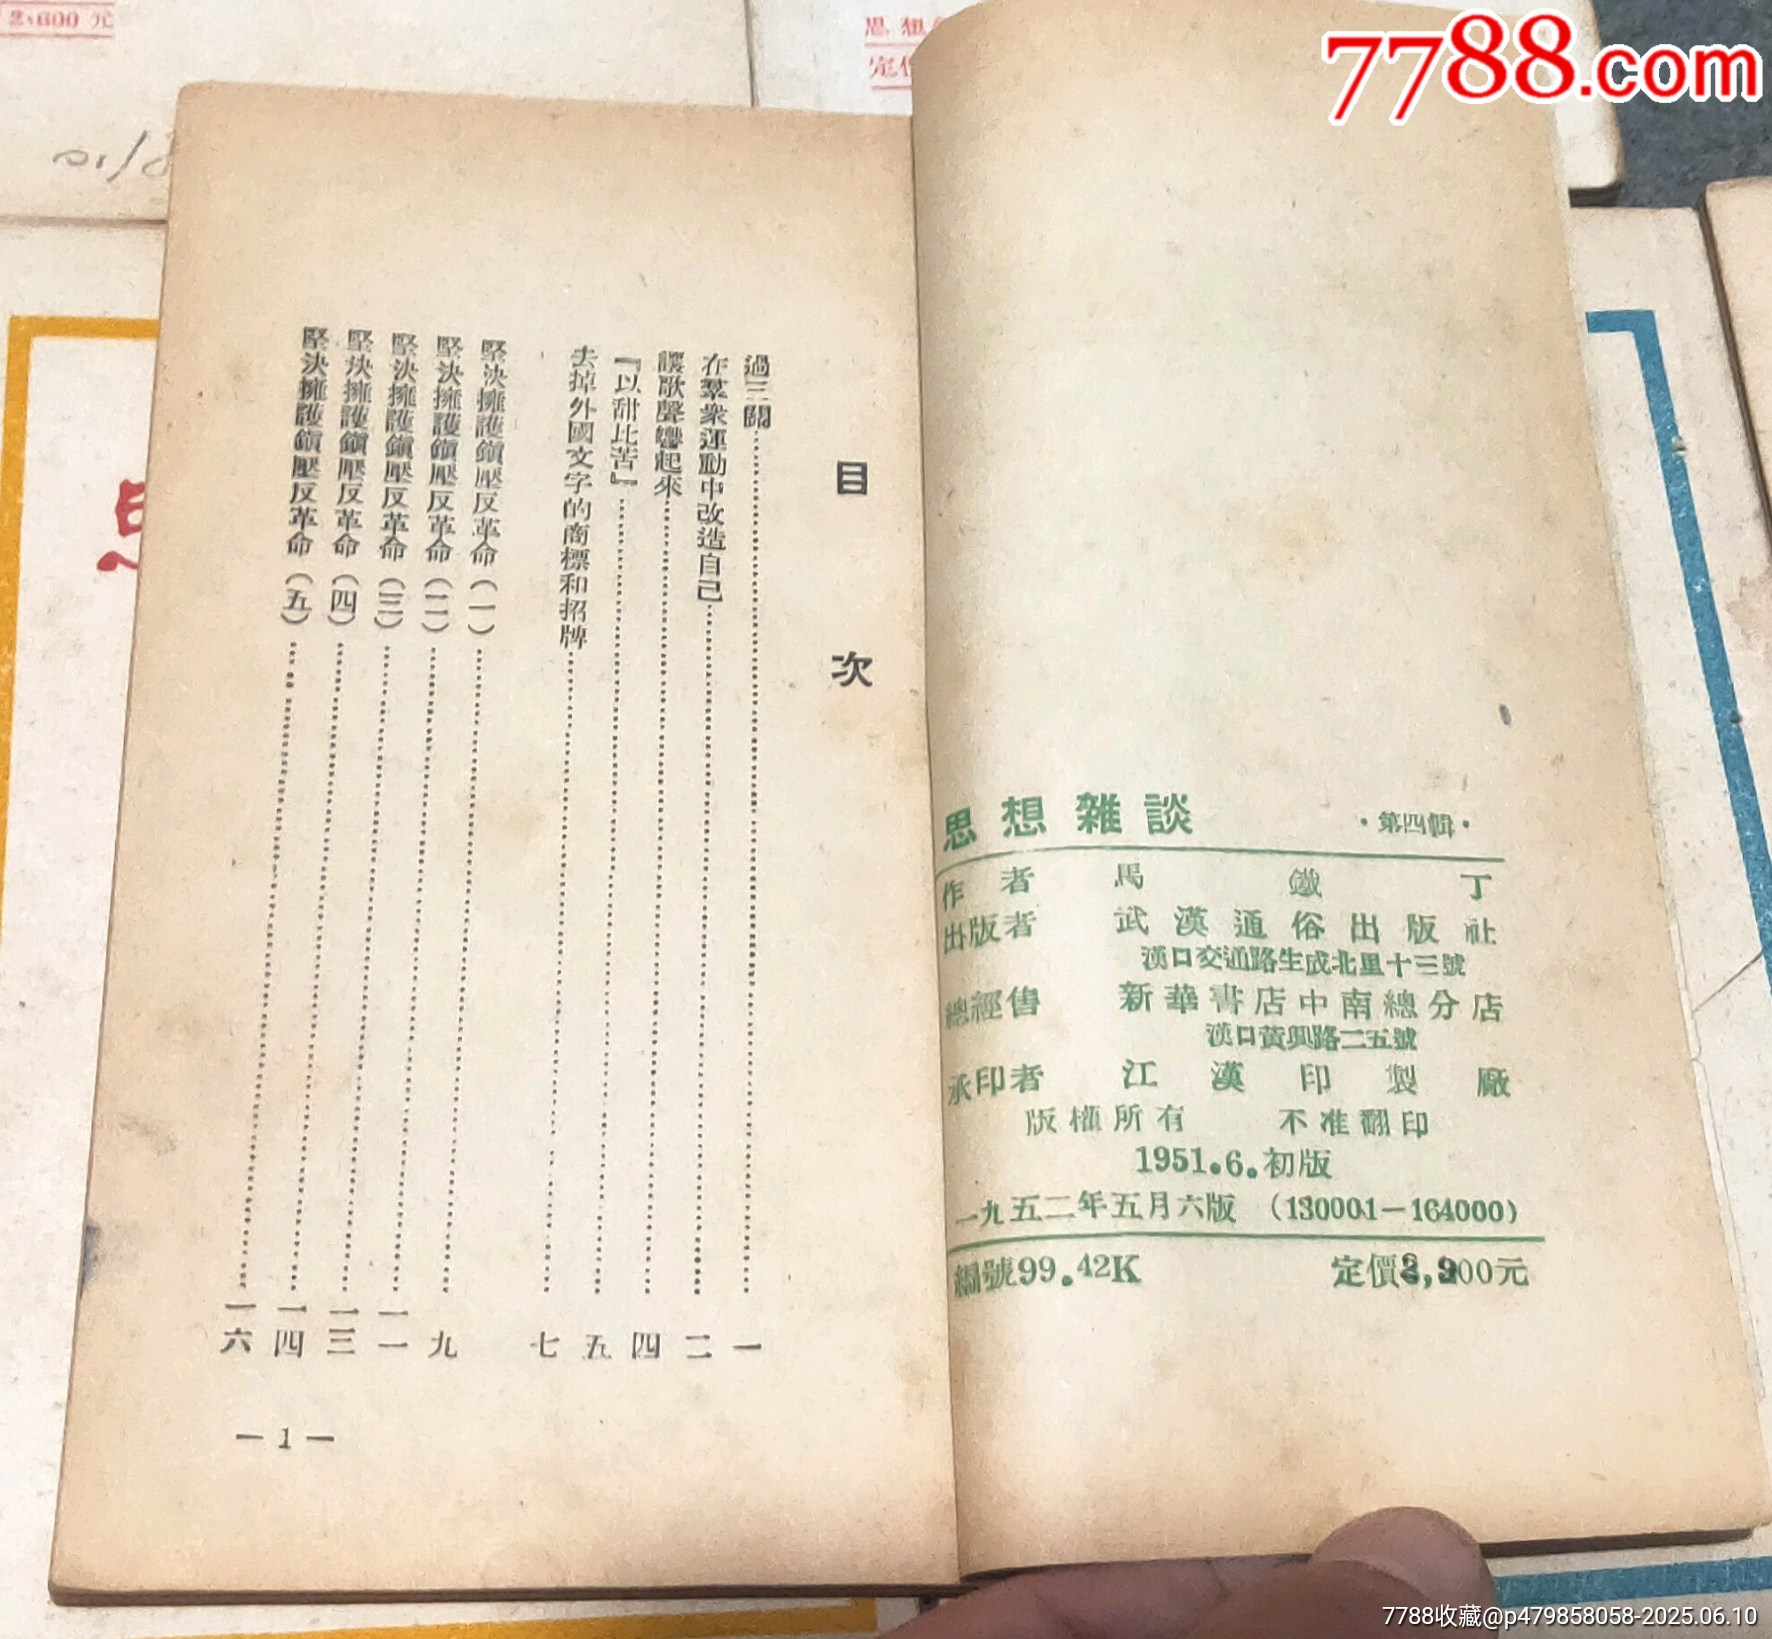 7788.com
2,600 元
思想
定價
目次
過三關 一
在羣衆運動中改造自己 二
讓歌聲響起來 四
『以甜比苦』 五
去掉外國文字的商標和招牌 七
堅決擁護鎭壓反革命（一） 九
堅決擁護鎭壓反革命（二） 一一
堅決擁護鎭壓反革命（三） 一三
堅決擁護鎭壓反革命（四） 一四
堅決擁護鎭壓反革命（五） 一六
—1—
思想雜談 ·第四輯·
作者 馬鐵丁
出版者 武漢通俗出版社
漢口交通路生成北里十三號
總經售 新華書店中南總分店
漢口黃興路二五號
承印者 江漢印製廠
版權所有 不准翻印
1951.6.初版
一九五二年五月六版 （130001—164000）
編號99.42K 定價 00元
7788收藏@p479858058-2025.06.10